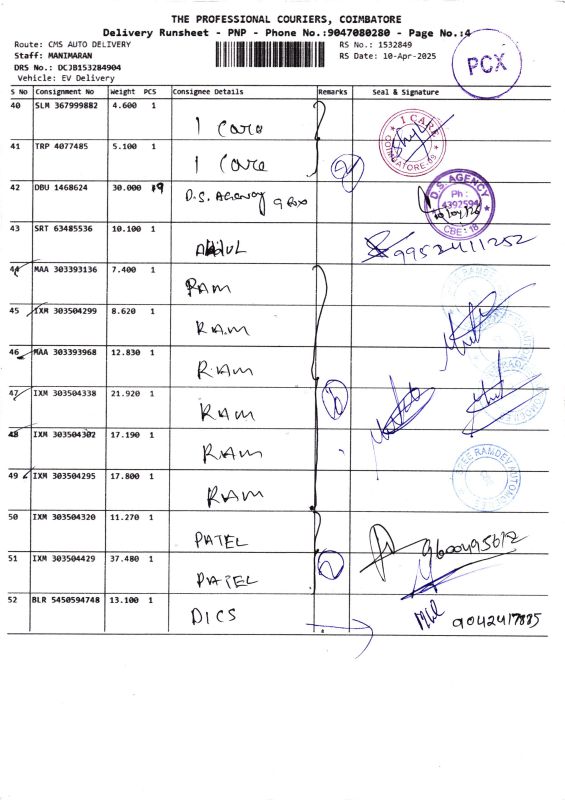 THE PROFESSIONAL COURIERS, COIMBATORE
Delivery Runsheet - PNP - Phone No.:9047080280 - Page No.:4
Route: CMS AUTO DELIVERY
Staff: MANIMARAN
DRS No.: DCJB153284904
Vehicle: EV Delivery
RS No.: 1532849
RS Date: 10-Apr-2025
PCX
S No Consignment No Weight PCS Consignee Details Remarks Seal & Signature
40 SLM 367999882 4.600 1 I Care
I CARE
COIMBATORE
41 TRP 4077485 5.100 1 I Care
2
42 DBU 1468624 30.000 9 D.S. Agency 9 Box
D.S. AGENCY
Ph :
4392594
CBE : 18
43 SRT 63485536 10.100 1 Abdul 9952411252
44 MAA 303393136 7.400 1 RAM
45 IXM 303504299 8.620 1 RAM
46 MAA 303393968 12.830 1 RAM
47 IXM 303504338 21.920 1 RAM
6
48 IXM 303504302 17.190 1 RAM
49 IXM 303504295 17.800 1 RAM
SREE RAMDEV AUTOMOTIVES
50 IXM 303504320 11.270 1 PATEL 9600495612
51 IXM 303504429 37.480 1 PATEL
2
52 BLR 5450594748 13.100 1 DICS 9042417885